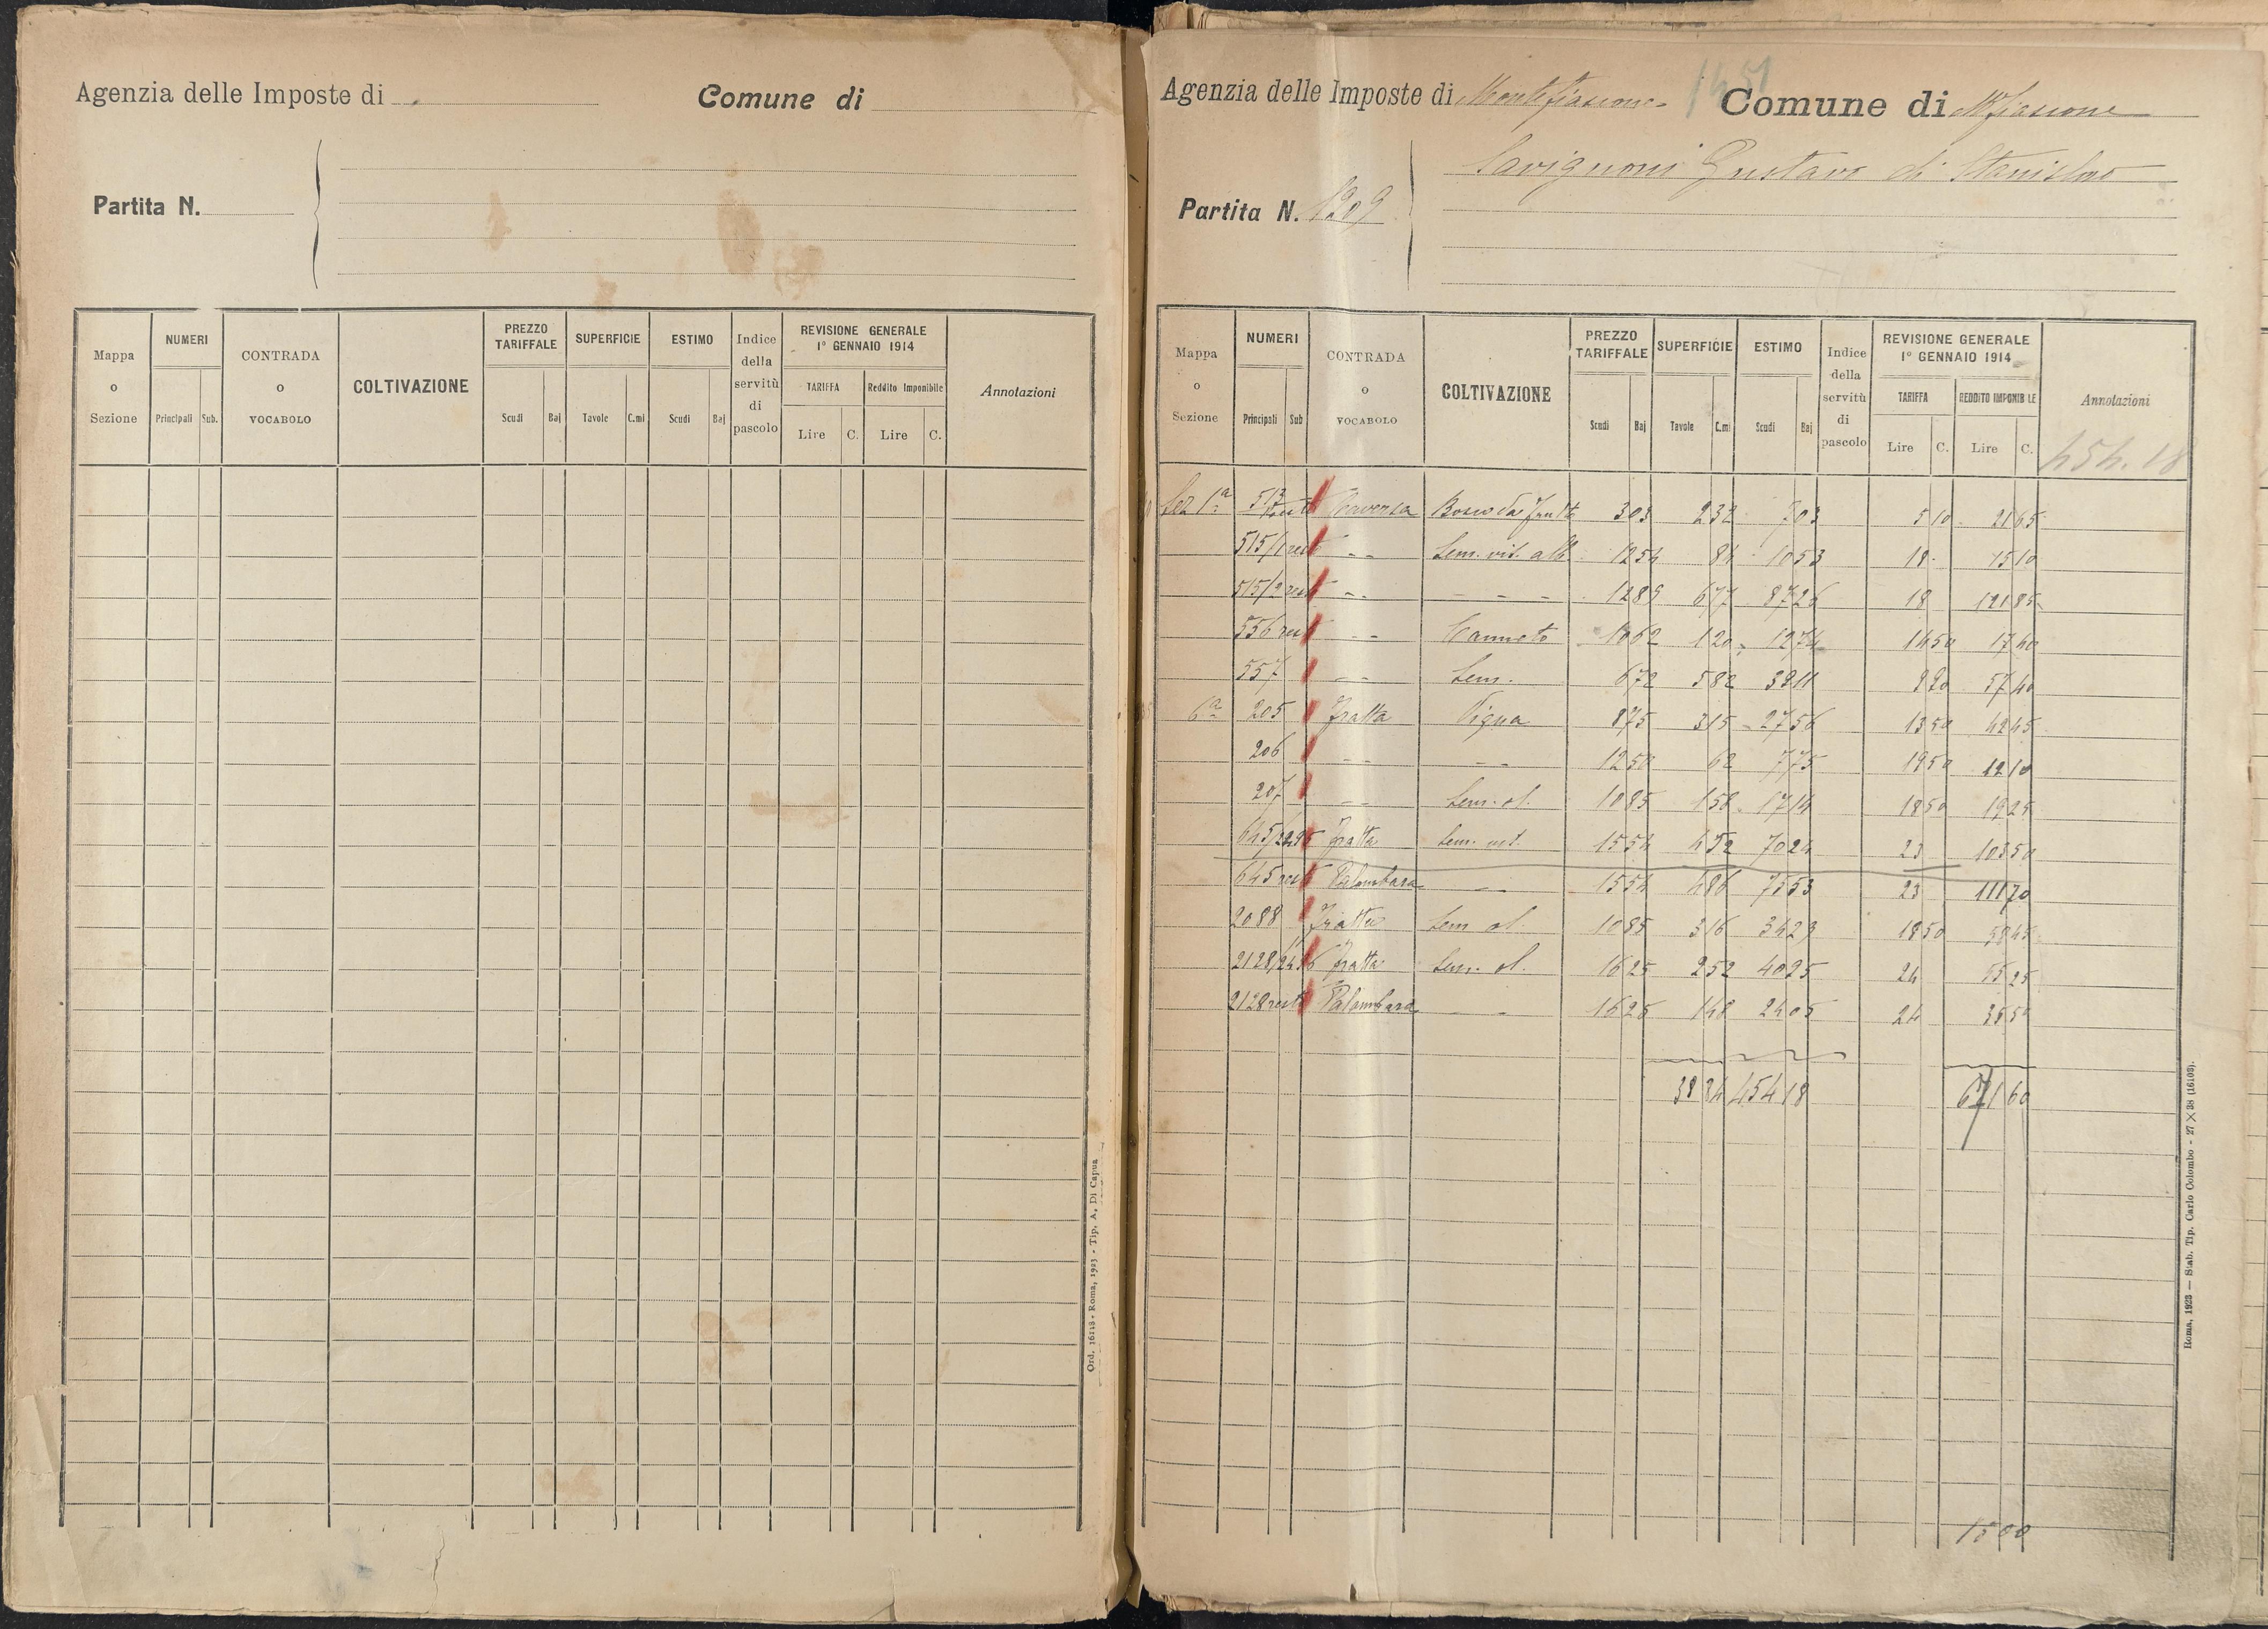 Agenzia delle Imposte di
Comune di
Partita N.
Mappa o Sezione
NUMERI
Principali Sub.
CONTRADA o VOCABOLO
COLTIVAZIONE
PREZZO TARIFFALE
Scudi Baj
SUPERFICIE
Tavole C.mi
ESTIMO
Scudi Baj
Indice della servitù di pascolo
REVISIONE GENERALE 1º GENNAIO 1914
TARIFFA
Lire C.
Reddito Imponibile
Lire C.
Annotazioni
Ord. 16118 - Roma, 1923 - Tip. A. Di Capua
1451
Agenzia delle Imposte di Montefiascone Comune di Mfiascone
Partita N. 1209
Savignoni Gustavo di Stanislao
Mappa o Sezione
NUMERI
Principali Sub
CONTRADA o VOCABOLO
COLTIVAZIONE
PREZZO TARIFFALE
Scudi Baj
SUPERFICIE
Tavole C.mi
ESTIMO
Scudi Baj
Indice della servitù di pascolo
REVISIONE GENERALE 1º GENNAIO 1914
TARIFFA
Lire C.
REDDITO IMPONIBILE
Lire C.
Annotazioni
454.18
Sez 1ª 513 rest Bosco da frutto 3 03 2 32 7 03 5 10 21 65
515/1 rest - - Sem. vit. alb 12 54 84 10 53 18 - 15 10
515/2 rest - - - - - 12 89 6 77 87 26 18 121 85
556 rest - - Canneto 10 62 1 20 12 74 14 50 17 40
557 - - Sem. 6 72 5 82 39 11 9 90 57 40
6ª 205 Fratta Vigna 8 75 3 15 27 56 13 50 42 45
206 - - - - 12 50 62 7 75 19 50 12 10
207 - - Sem. ol. 10 85 1 58 17 14 18 50 19 25
645/2495 Fratta Sem. vit. 15 54 4 52 70 24 23 103 50
645 rest Palombara - - 15 54 4 86 75 53 23 111 70
2088 Fratta Sem ol. 10 85 3 16 34 29 18 50 58 45
2128/2496 Fratta Sem. ol. 16 25 2 52 40 95 24 55 25
2128 rest Palombara - - 16 25 1 48 24 05 24 35 50
38 84 454 18 671 60
1500
Roma, 1923 — Stab. Tip. Carlo Colombo - 27 X 38 (16103).